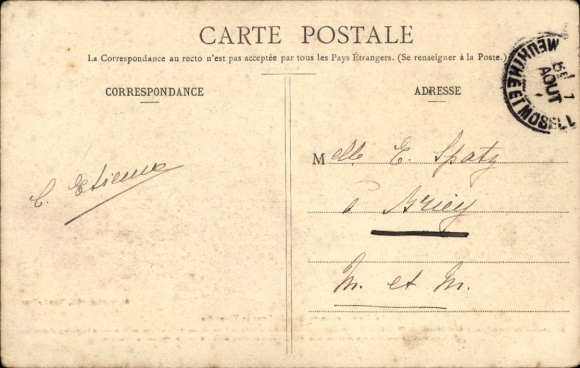 CARTE POSTALE
La Correspondance au recto n'est pas acceptée par tous les Pays Étrangers. (Se renseigner à la Poste.)
CORRESPONDANCE
ADRESSE
MEURTHE ET MOSELL
7
AOUT
Melle E. Spatz
à Briey
M. et M.
C. Etienne